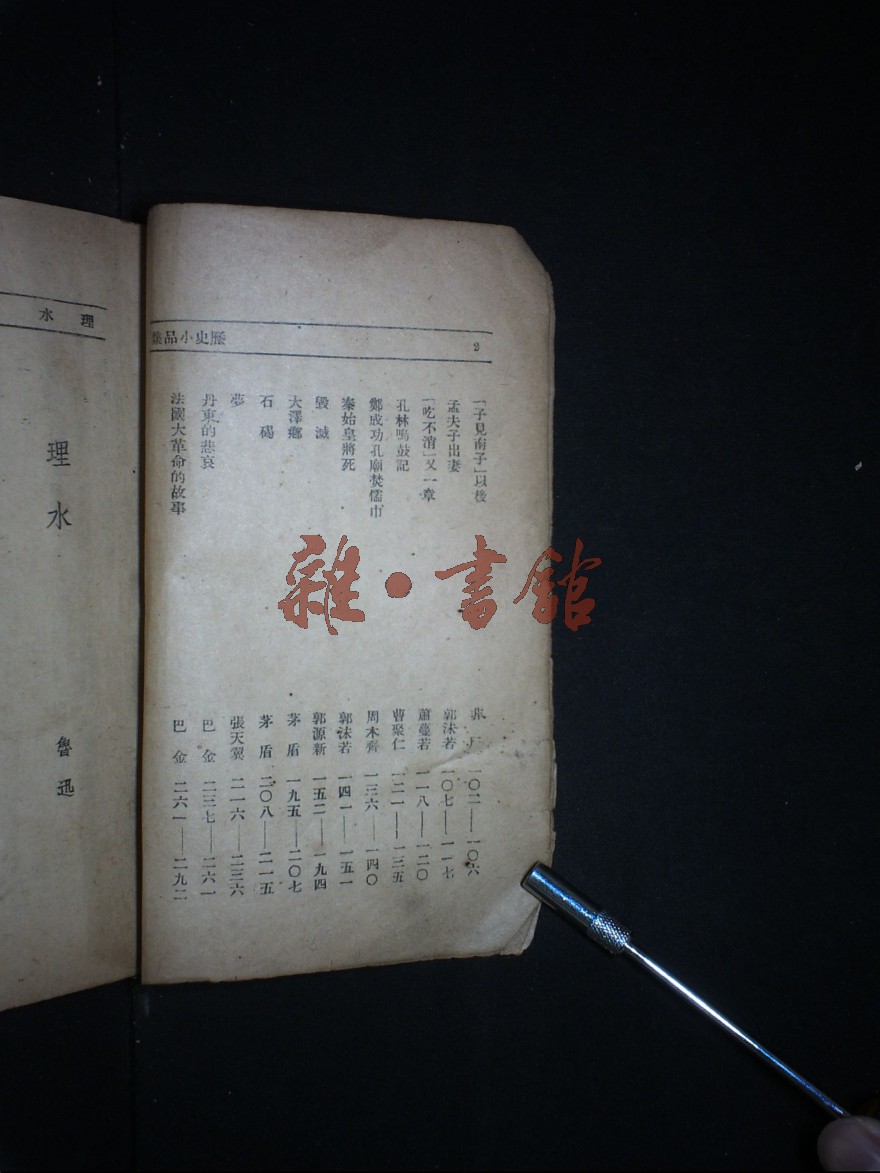 歷史小品集
2
「子見南子」以後 非厂 一〇二——一〇六
孟夫子出妻 郭沫若 一〇七——一一七
「吃不消」又一章 蕭蔓若 一一八——一二〇
孔林鳴鼓記 曹聚仁 一二一——一三五
鄭成功孔廟焚儒巾 周木齋 一三六——一四〇
秦始皇將死 郭沫若 一四一——一五一
毀滅 郭源新 一五二——一九四
大澤鄉 茅盾 一九五——二〇七
石碣 茅盾 二〇八——二一五
夢 張天翼 二一六——二三六
丹東的悲哀 巴金 二三七——二六一
法國大革命的故事 巴金 二六一——二九二
理水
理水
魯迅
雜·書館